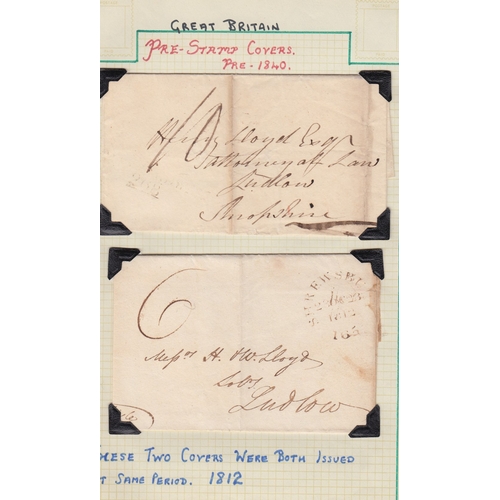 GREAT BRITAIN
PRE-STAMP COVERS.
PRE-1840.
10
Lloyd Esqr
Attorney at Law
Ludlow
Shropshire
6
SHREWSBU
1812
163
Messrs H. & W. Lloyd
Solrs
Ludlow
HESE TWO COVERS WERE BOTH ISSUED
T SAME PERIOD. 1812